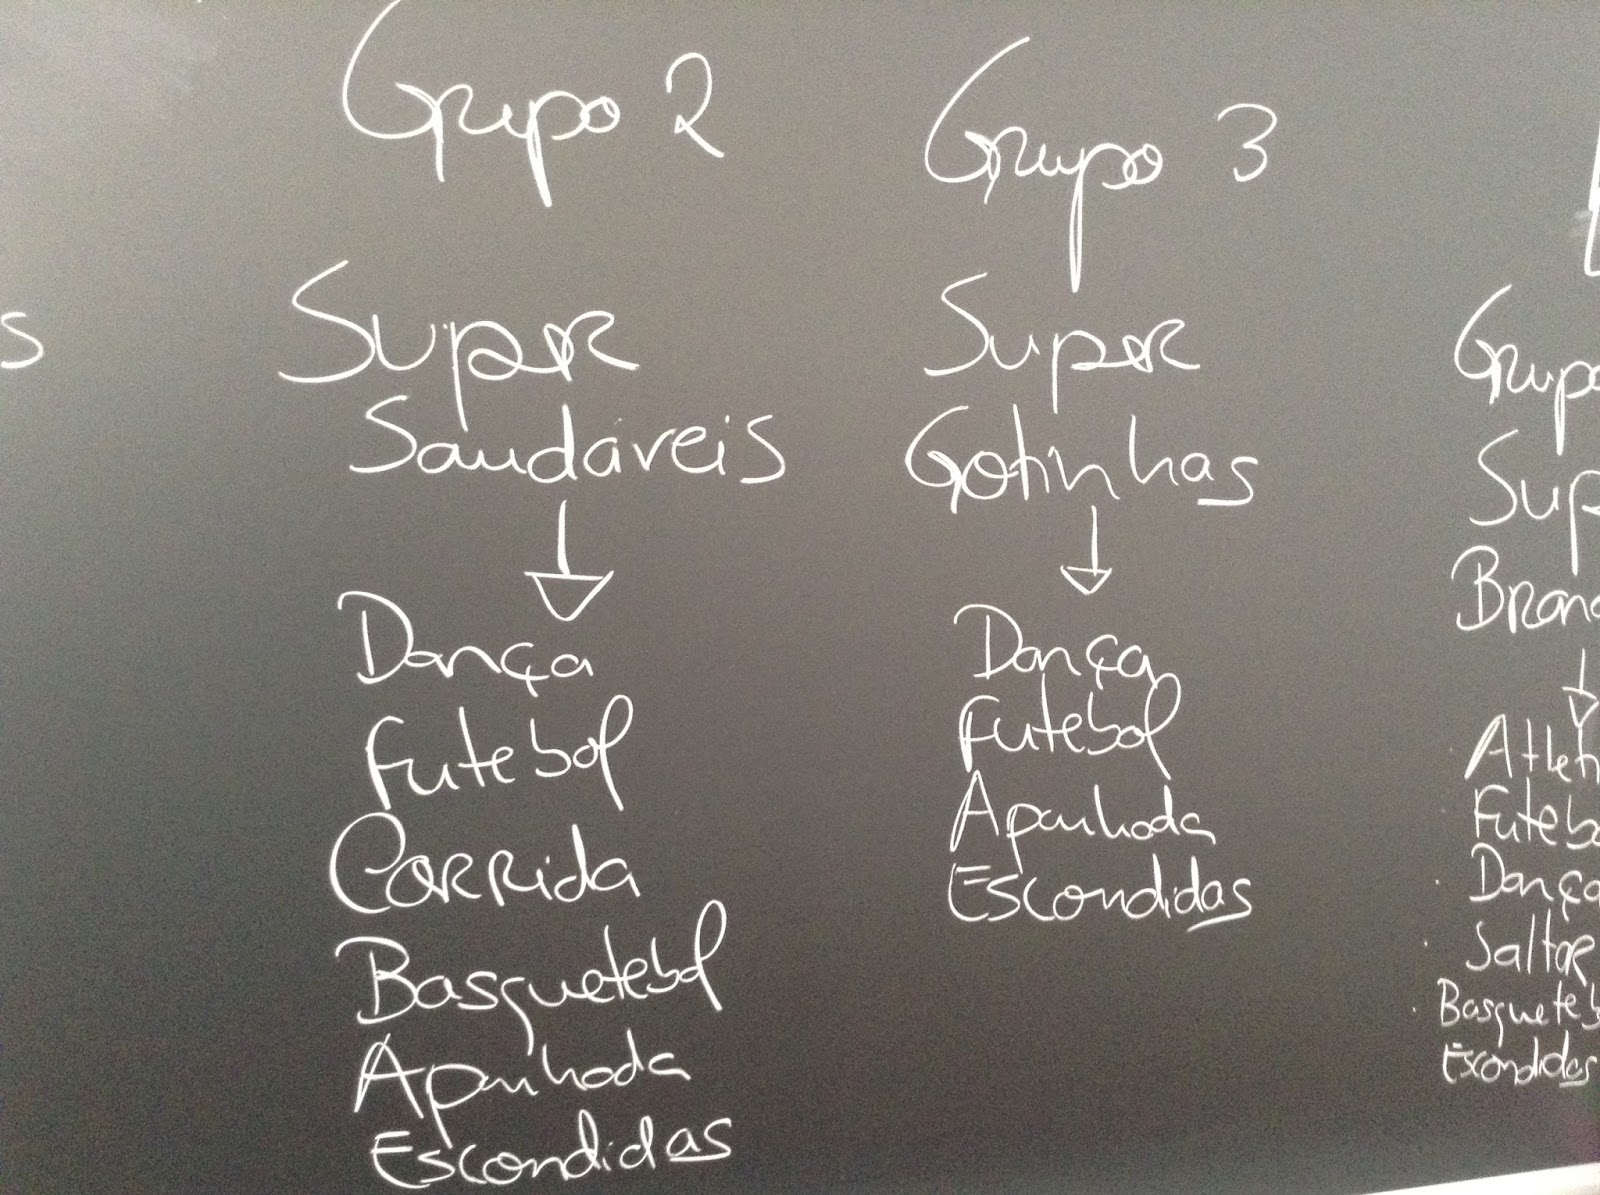 s
Grupo 2
Super
Saudáveis
Dança
Futebol
Corrida
Basquetebol
Apanhada
Escondidas
Grupo 3
Super
Gotinhas
Dança
Futebol
Apanhada
Escondidas
Grupo
Sup
Branc
Atleti
Futebo
Dança
Saltar
Basqueteb
Escondidas